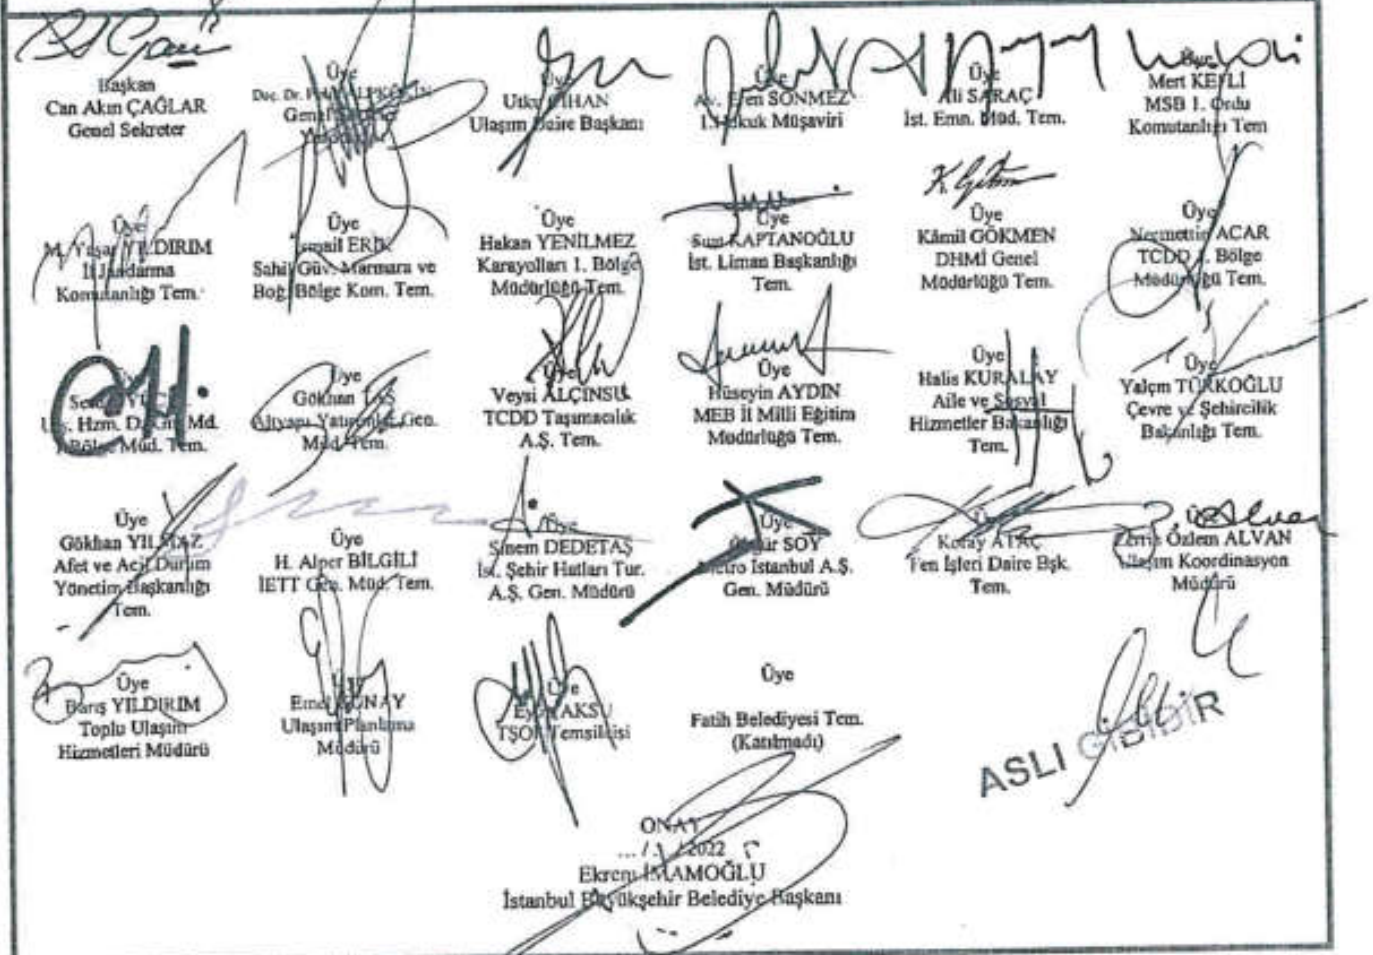 Başkan
Can Akın ÇAĞLAR
Genel Sekreter
Üye
Doç. Dr.
Genel
Üye
Utku CİHAN
Ulaşım Daire Başkanı
Üye
Av. Eren SÖNMEZ
1.Hukuk Müşaviri
Üye
Ali SARAÇ
İst. Emn. Müd. Tem.
Üye
Mert KESLİ
MSB 1. Ordu
Komutanlığı Tem
Üye
M. Yaşar YILDIRIM
İl Jandarma
Komutanlığı Tem.
Üye
İsmail
Sahil Güv. Marmara ve
Boğ. Bölge Kom. Tem.
Üye
Hakan YENİLMEZ
Karayolları 1. Bölge
Müdürlüğü Tem.
Üye
KAPTANOĞLU
İst. Liman Başkanlığı
Tem.
Üye
Kâmil GÖKMEN
DHMİ Genel
Müdürlüğü Tem.
Üye
Necmettin ACAR
TCDD 1. Bölge
Müdürlüğü Tem.
Üye
Hzm. Md.
Bölge Müd. Tem.
Üye
Gökhan TAŞ
Altyapı Yatırımlar Gen.
Müd. Tem.
Üye
Veysi ALÇINSU
TCDD Taşımacılık
A.Ş. Tem.
Üye
Hüseyin AYDIN
MEB İl Milli Eğitim
Müdürlüğü Tem.
Üye
Halis KURALAY
Aile ve Sosyal
Hizmetler Bakanlığı
Tem.
Üye
Yalçın TÜRKOĞLU
Çevre ve Şehircilik
Bakanlığı Tem.
Üye
Gökhan YILMAZ
Afet ve Acil Durum
Yönetim Başkanlığı
Tem.
Üye
H. Alper BİLGİLİ
İETT Gen. Müd. Tem.
Üye
Sinem DEDETAŞ
İst. Şehir Hatları Tur.
A.Ş. Gen. Müdürü
Üye
Özgür SOY
Metro İstanbul A.Ş.
Gen. Müdürü
Üye
Koray ATAÇ
Fen İşleri Daire Bşk.
Tem.
Üye
Özlem ALVAN
Ulaşım Koordinasyon
Müdürü
Üye
Barış YILDIRIM
Toplu Ulaşım
Hizmetleri Müdürü
Üye
Emel
Ulaşım Planlama
Müdürü
Üye
AKSU
Temsilcisi
Üye
Fatih Belediyesi Tem.
(Katılmadı)
ASLI GİBİDİR
ONAY
/2022
Ekrem İMAMOĞLU
İstanbul Büyükşehir Belediye Başkanı